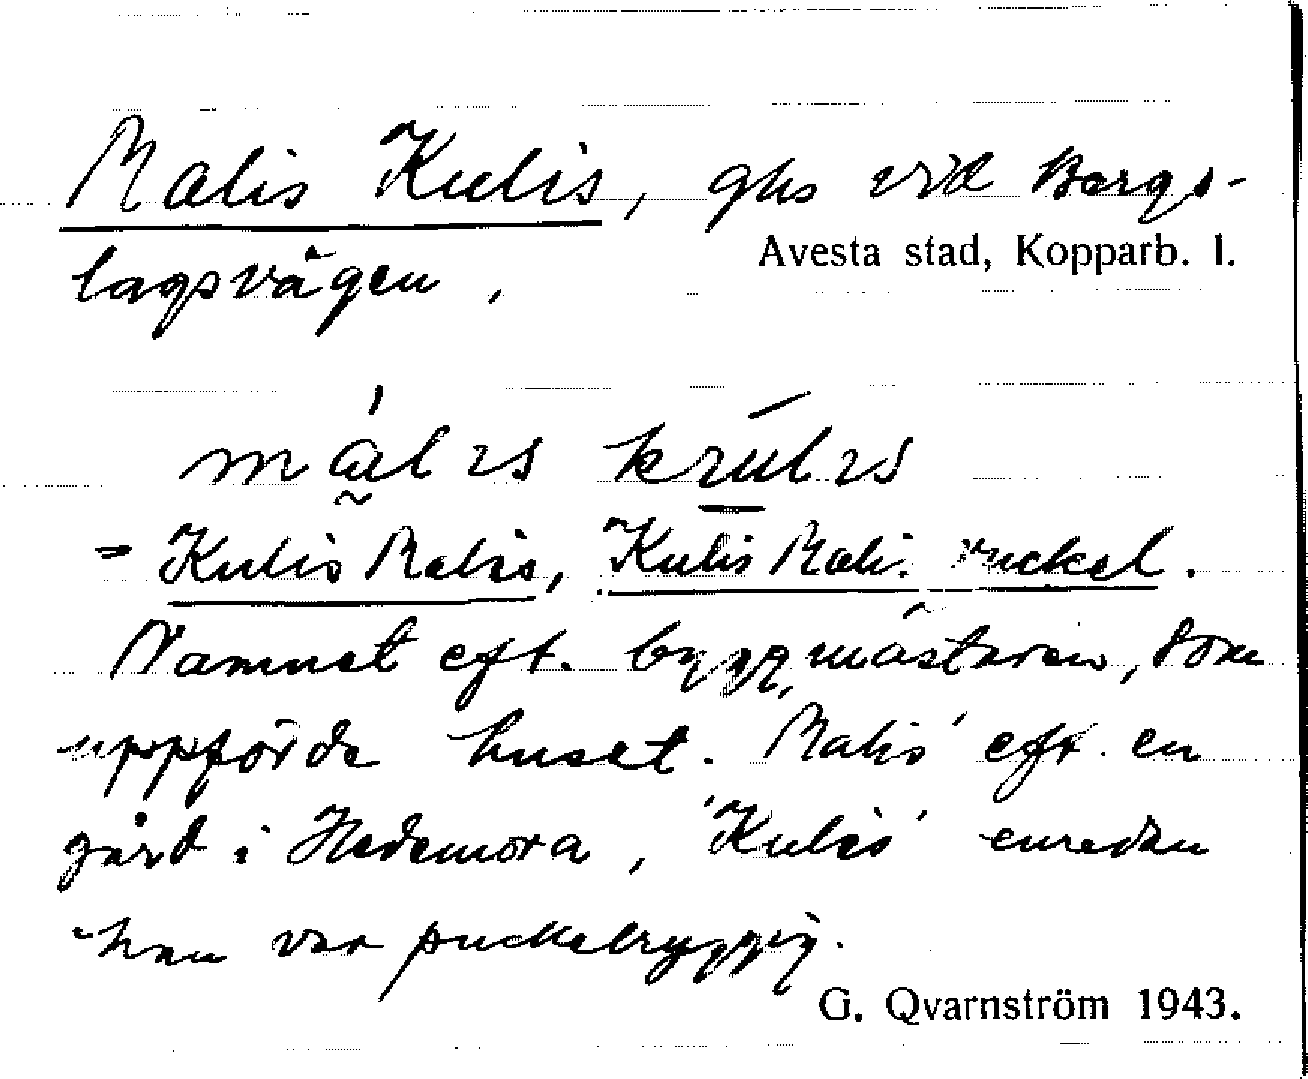 Malis Kulis, ghs vid Bergs-
Avesta stad, Kopparb. l.
lagsvägen.
= Kulis Malis, Kulis Mali. ruckel.
Namnet eft. byggmästaren, som
uppförde huset. 'Malis' eft. en
gård i Hedemora, 'Kulis' emedan
han var puckelryggig.
G. Qvarnström 1943.